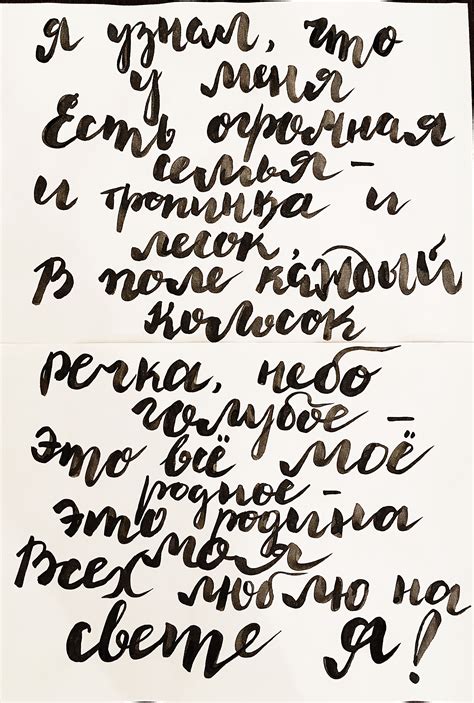 Я узнал, что
у меня
Есть огромная
семья -
и тропинка и
лесок,
В поле каждый
колосок
речка, небо
голубое -
Это всё моё
родное -
это родина
моя
Всех люблю на
свете я!